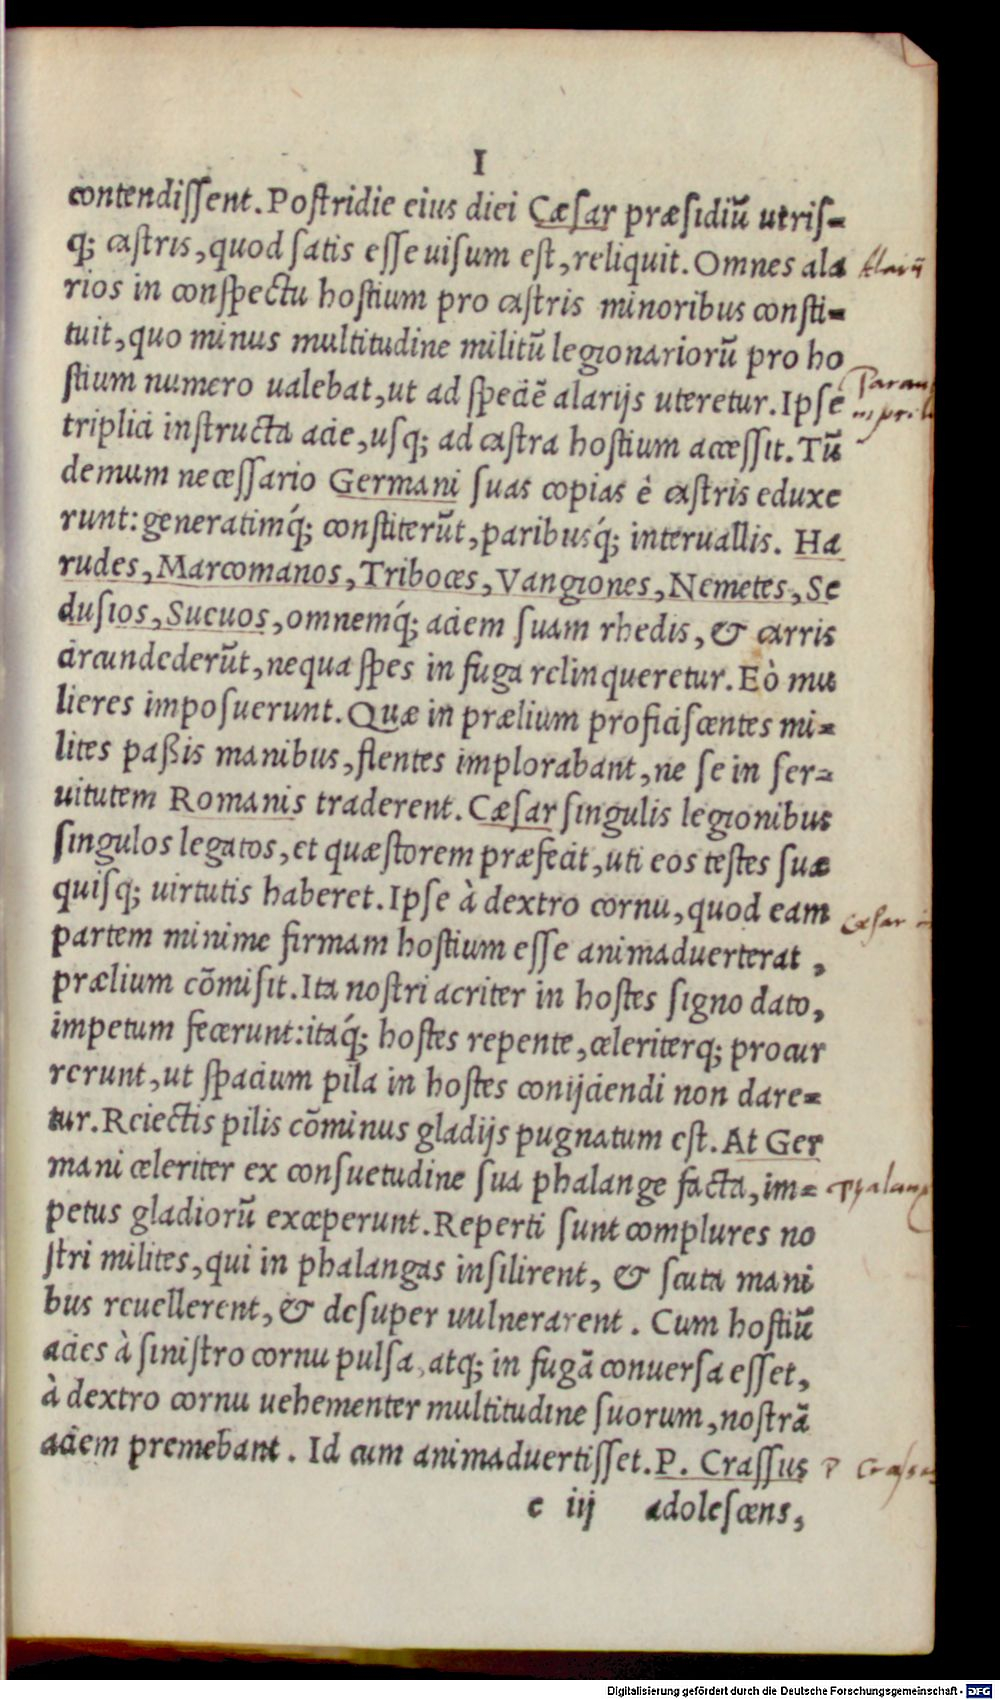 I
contendissent. Postridie eius diei Cæsar præsidiū utris=
q; castris, quod satis esse uisum est, reliquit. Omnes ala
Alarij
rios in conspectu hostium pro castris minoribus consti=
tuit, quo minus multitudine militū legionariorū pro ho
stium numero ualebat, ut ad speciē alarijs uteretur. Ipse
triplici instructa acie, usq; ad castra hostium accessit. Tū
demum necessario Germani suas copias è castris eduxe
runt: generatimq́; constiterūt, paribusq́; interuallis. Ha
rudes, Marcomanos, Triboces, Vangiones, Nemetes, Se
dusios, Sueuos, omnemq́; aciem suam rhedis, & carris
circundederūt, nequa spes in fuga relinqueretur. Eò mu
lieres imposuerunt. Quæ in prælium proficiscentes mi=
lites paßis manibus, flentes implorabant, ne se in ser=
uitutem Romanis traderent. Cæsar singulis legionibus
singulos legatos, et quæstorem præfecit, uti eos testes suæ
quisq; uirtutis haberet. Ipse à dextro cornu, quod eam
Cæsar
partem minime firmam hostium esse animaduerterat,
prælium cōmisit. Ita nostri acriter in hostes signo dato,
impetum fecerunt: itaq́; hostes repente, celeriterq; procur
rerunt, ut spacium pila in hostes conijciendi non dare=
tur. Reiectis pilis cōminus gladijs pugnatum est. At Ger
mani celeriter ex consuetudine sua phalange facta, im=
Phalanx
petus gladiorū exceperunt. Reperti sunt complures no
stri milites, qui in phalangas insilirent, & scuta mani
bus reuellerent, & desuper uulnerarent. Cum hostiū
acies à sinistro cornu pulsa, atq; in fugā conuersa esset,
à dextro cornu uehementer multitudine suorum, nostrā
aciem premebant. Id cum animaduertisset. P. Crassus
P Crassus
c iij adolescens,
Digitalisierung gefördert durch die Deutsche Forschungsgemeinschaft - DFG